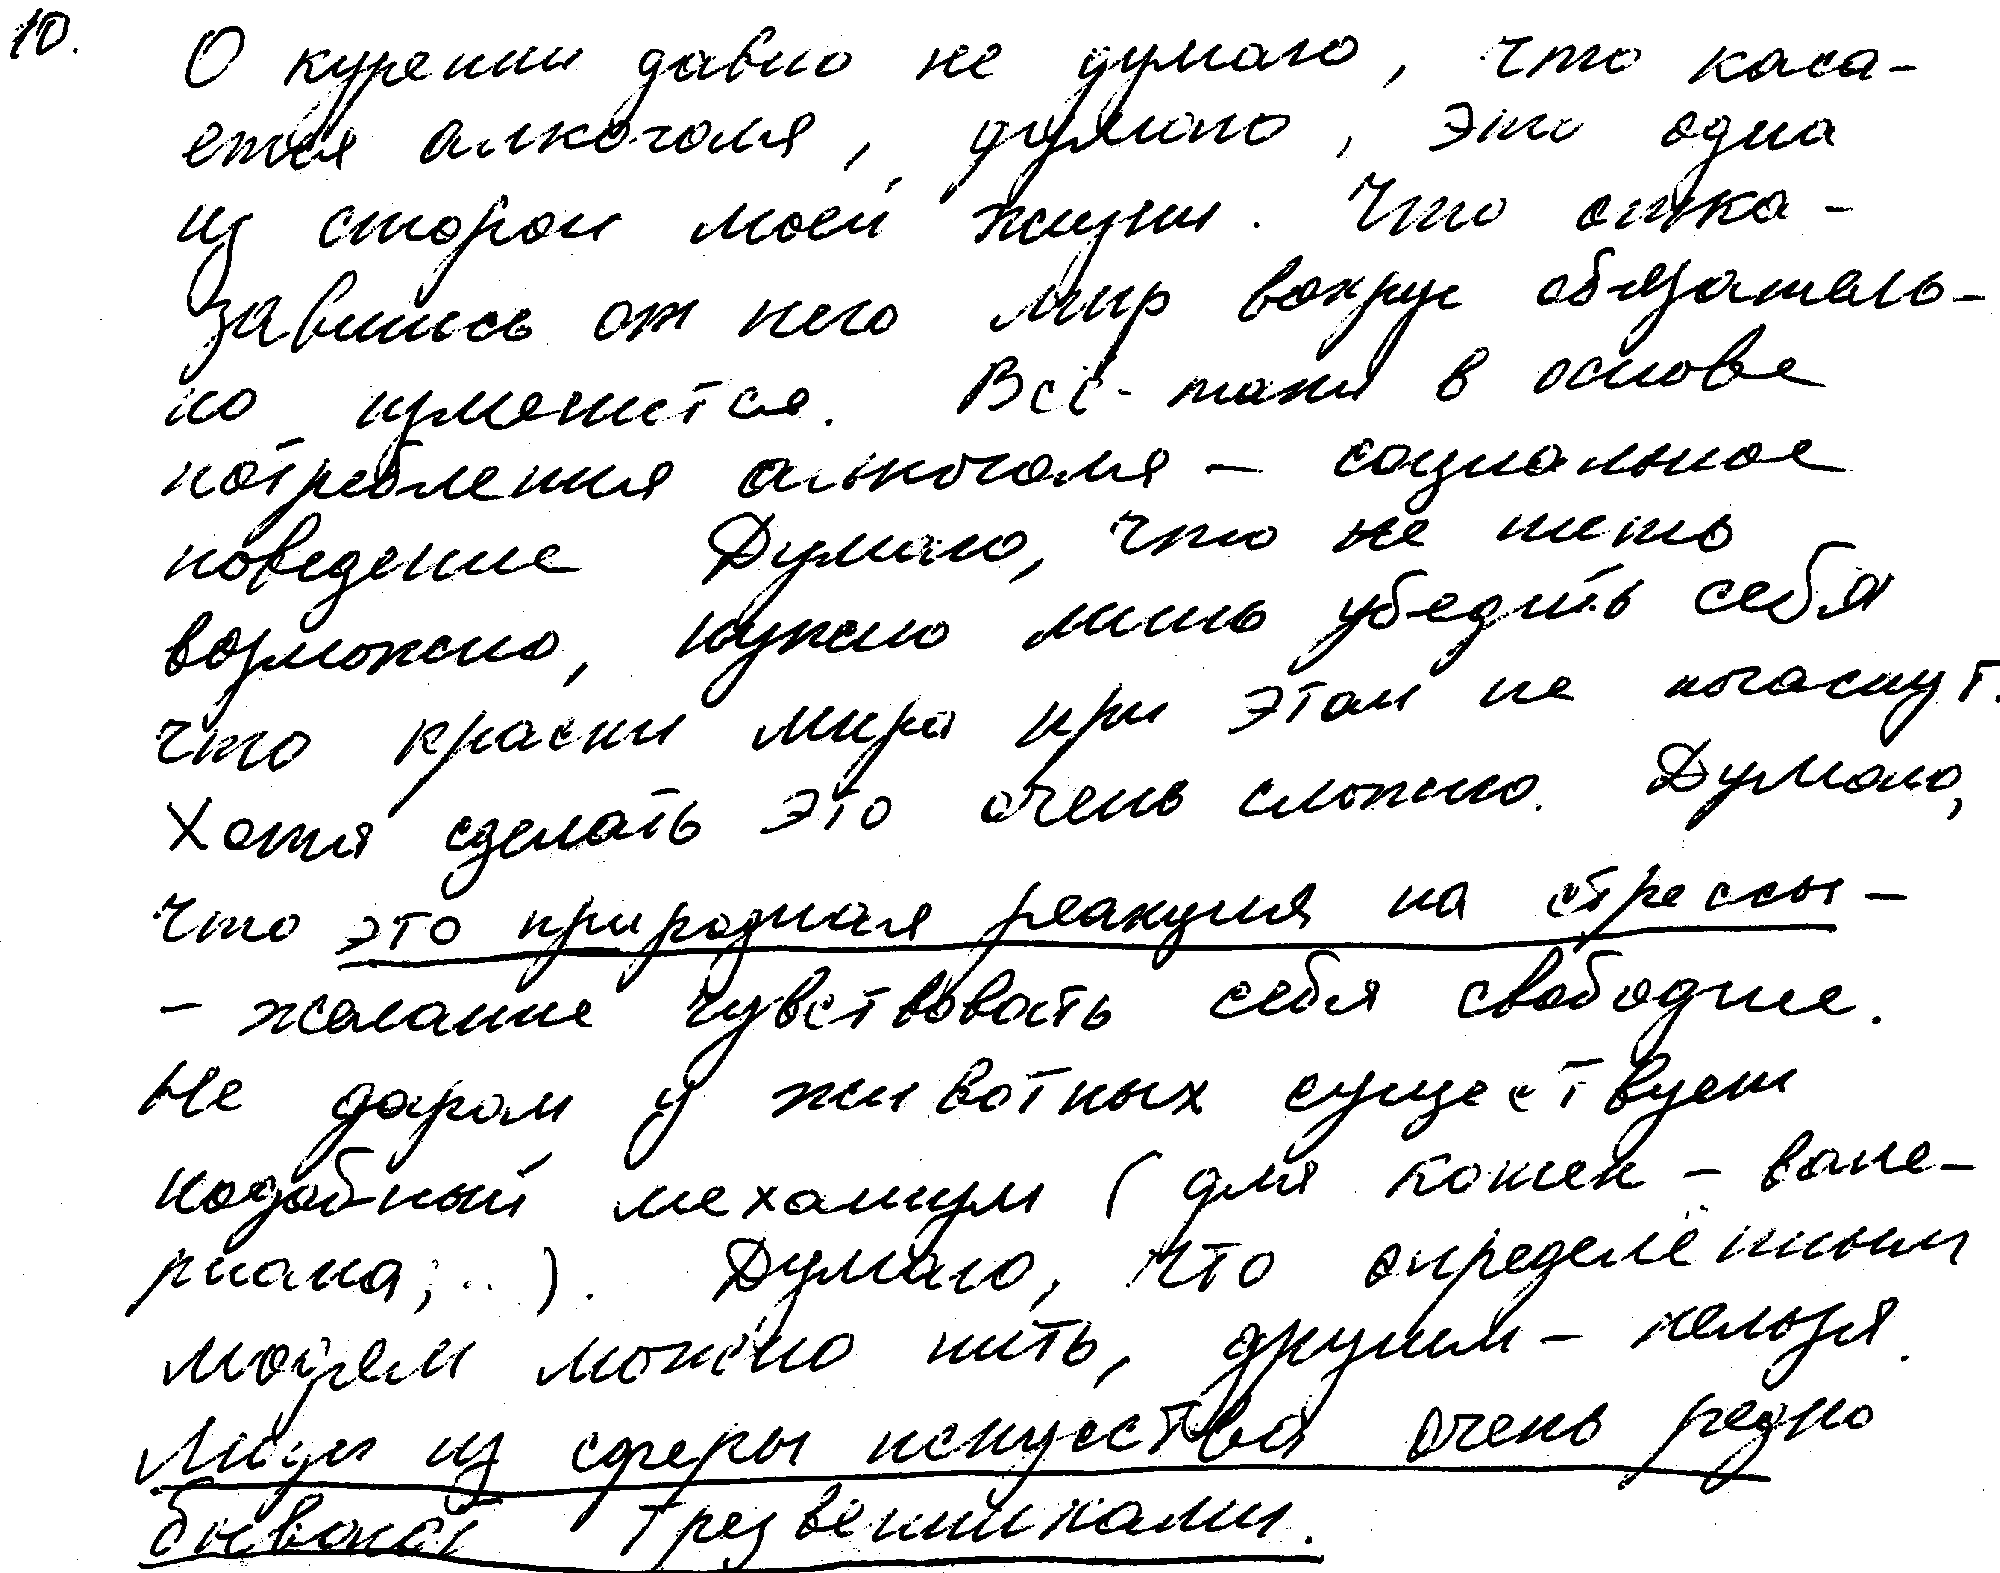 10. О курении давно не думаю, что каса-
ется алкоголя, думаю, это одна
из сторон моей жизни. Что отка-
завшись от него мир вокруг обязатель-
но изменится. Всё-таки в основе
потребления алкоголя – социальное
поведение Думаю, что не пить
возможно, нужно лишь убедить себя
что краски мира при этом не погаснут.
Хотя сделать это очень сложно. Думаю,
что это природная реакция на стрессы –
– желание чувствовать себя свободнее.
Не даром у животных существует
подобный механизм (для кошек – вале-
риана; ..). Думаю, что определённым
людям можно пить, другим – нельзя.
Люди из сферы искусства очень редко
бывают трезвенниками.